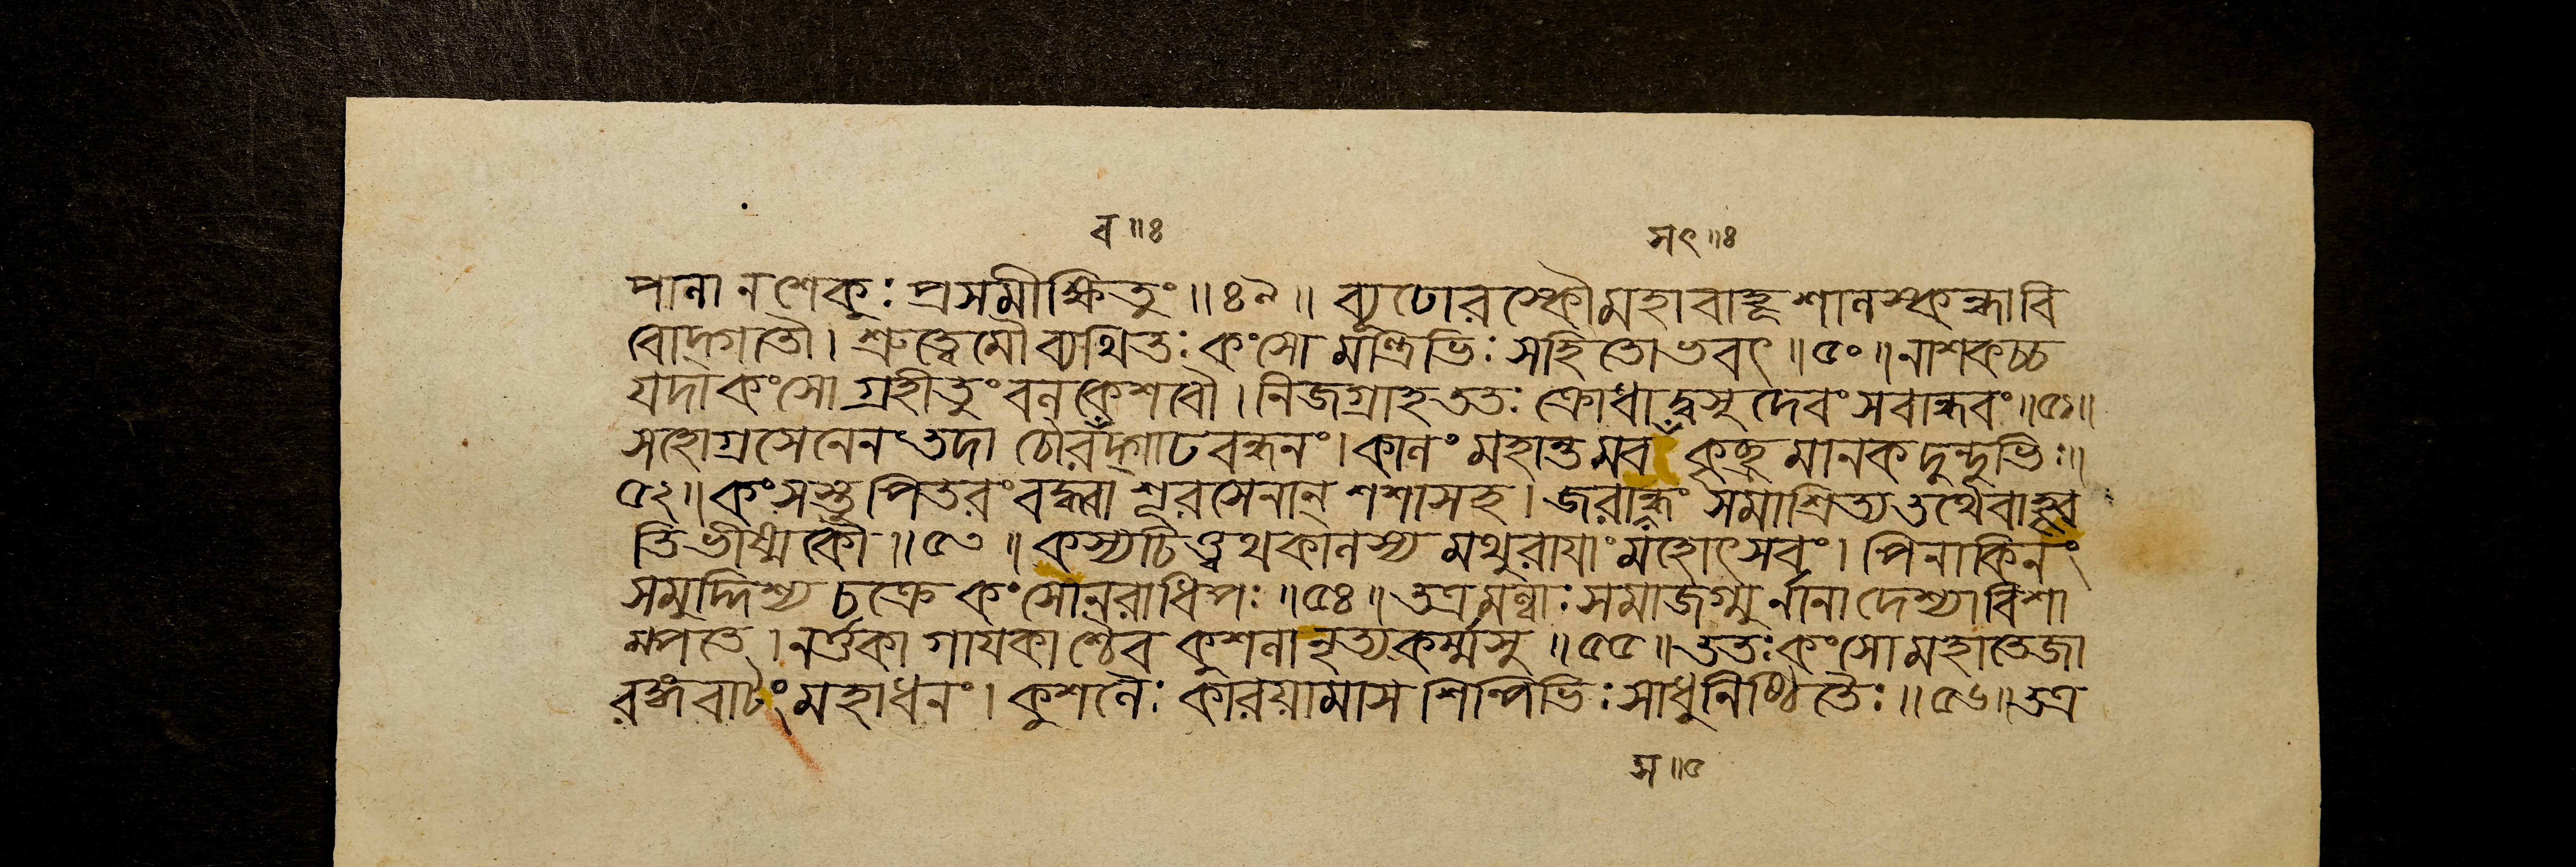 ব॥৪ সং॥৪
পানা নশেকুঃ প্রসমীক্ষিতুং॥৪৯॥ ব্যূঢোরস্কৌমহাবাহূশালস্কন্ধাবি
বোদ্গতৌ। শ্রুত্বেমৌব্যথিতঃ কংসো মন্ত্রিভিঃ সহিতোভবৎ॥৫০॥নাশকচ্চ
যদাকংসো গ্রহীতুং বলকেশবৌ। নিজগ্রাহততঃ ক্রোধাদ্বসুদেবং সবান্ধবং॥৫১॥
সহোগ্রসেনেন তদা চৌরবদ্গাঢবন্ধনং।কালং মহান্তমবসৎ কৃচ্ছ্রমানকদুন্দুভিঃ॥
৫২॥কংসস্তু পিতরং বদ্ধ্বা শূরসেনান্ শশাসহ। জরাসন্ধং সমাশ্রিত্যতথৈবাহৃব
তিভীষ্মকৌ॥৫৩॥ কস্যচিত্ত্বথকালস্য মথুরাযাং মহোৎসবং। পিনাকিনং
সমুদ্দিশ্য চক্রে কংসোনরাধিপঃ॥৫৪॥তত্রমল্লাঃ সমাজগ্মুর্নানাদেশ্যাবিশা
ম্পতে।নর্ত্তকা গাযকাশ্চৈব কুশলানৃত্যকর্ম্মসু॥৫৫॥ততঃকংসোমহাতেজা
রঙ্গবাটং মহাধনং। কুশলৈঃ কারয়ামাস শিল্পিভিঃ সাধুনিষ্ঠিতৈঃ॥৫৬॥তত্র
স॥৫